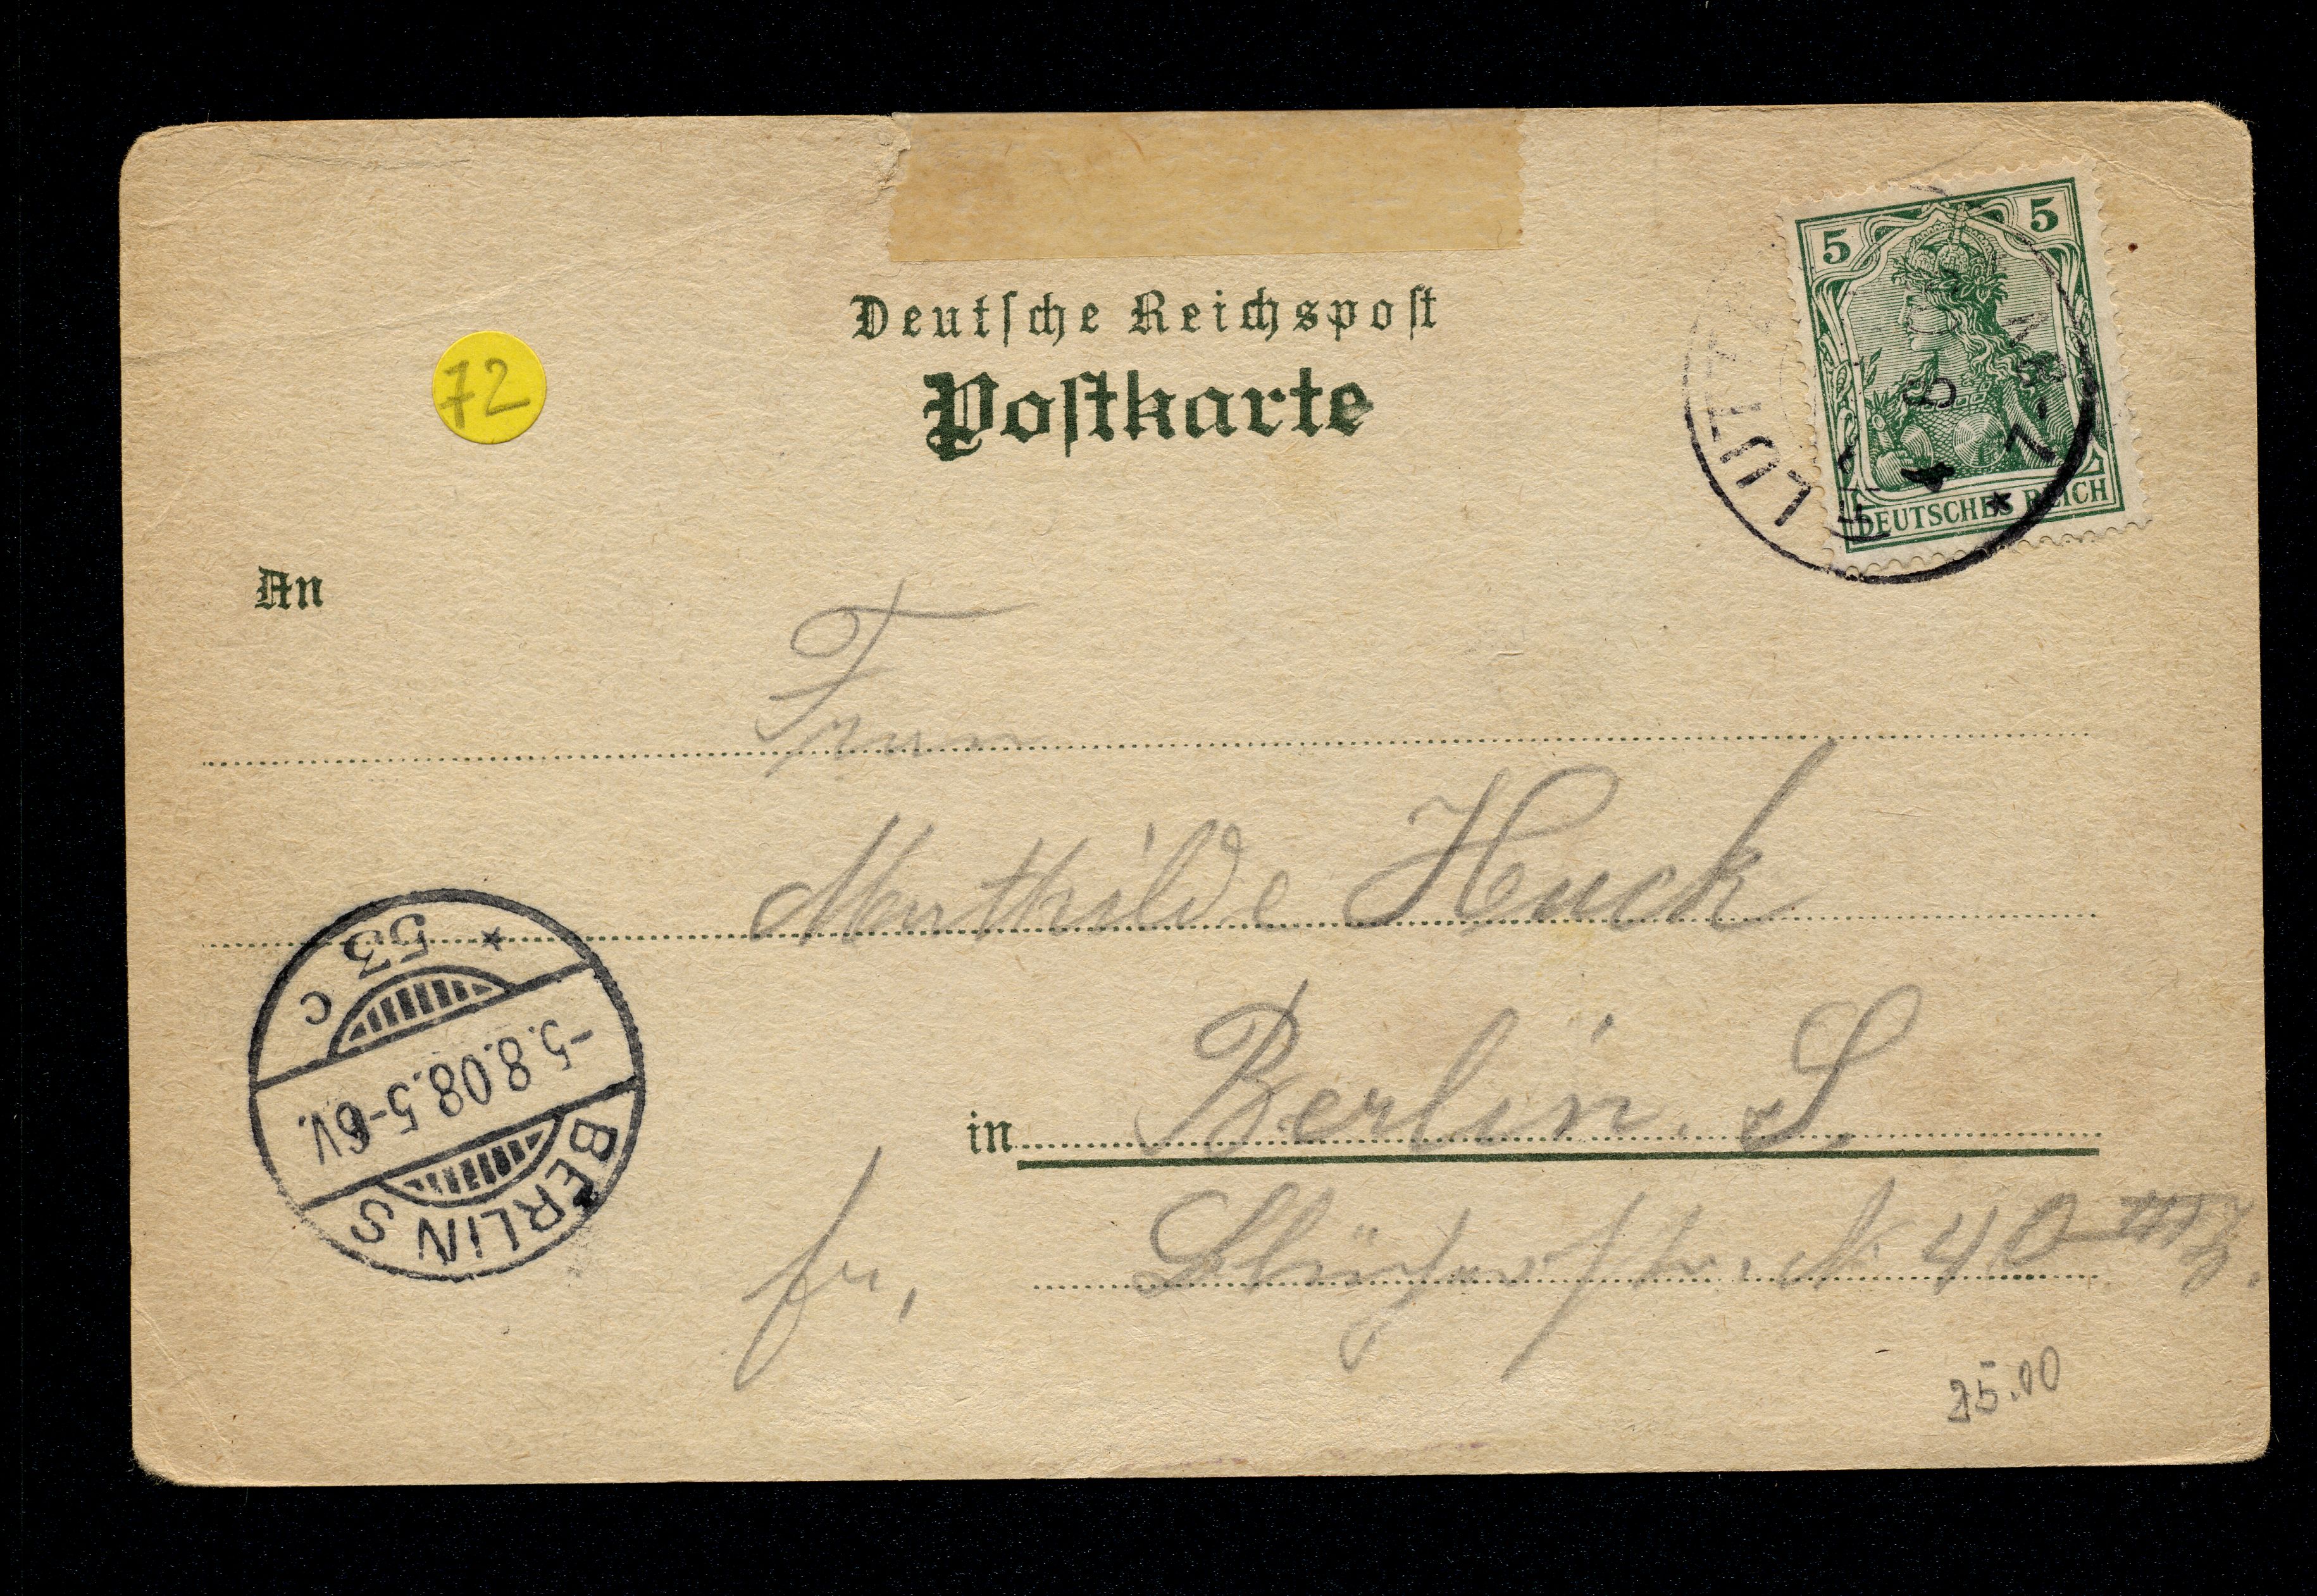 72
Deutsche Reichspost
Postkarte
5 5
DEUTSCHES REICH
LÜTZ
4 8
7-8N
*
An
Frau
Mathilde Huck
in Berlin. S.
fr, Blücherstr. N. 40 III
* 53 C
-5.8.08.5-6V.
BERLIN S
25.00